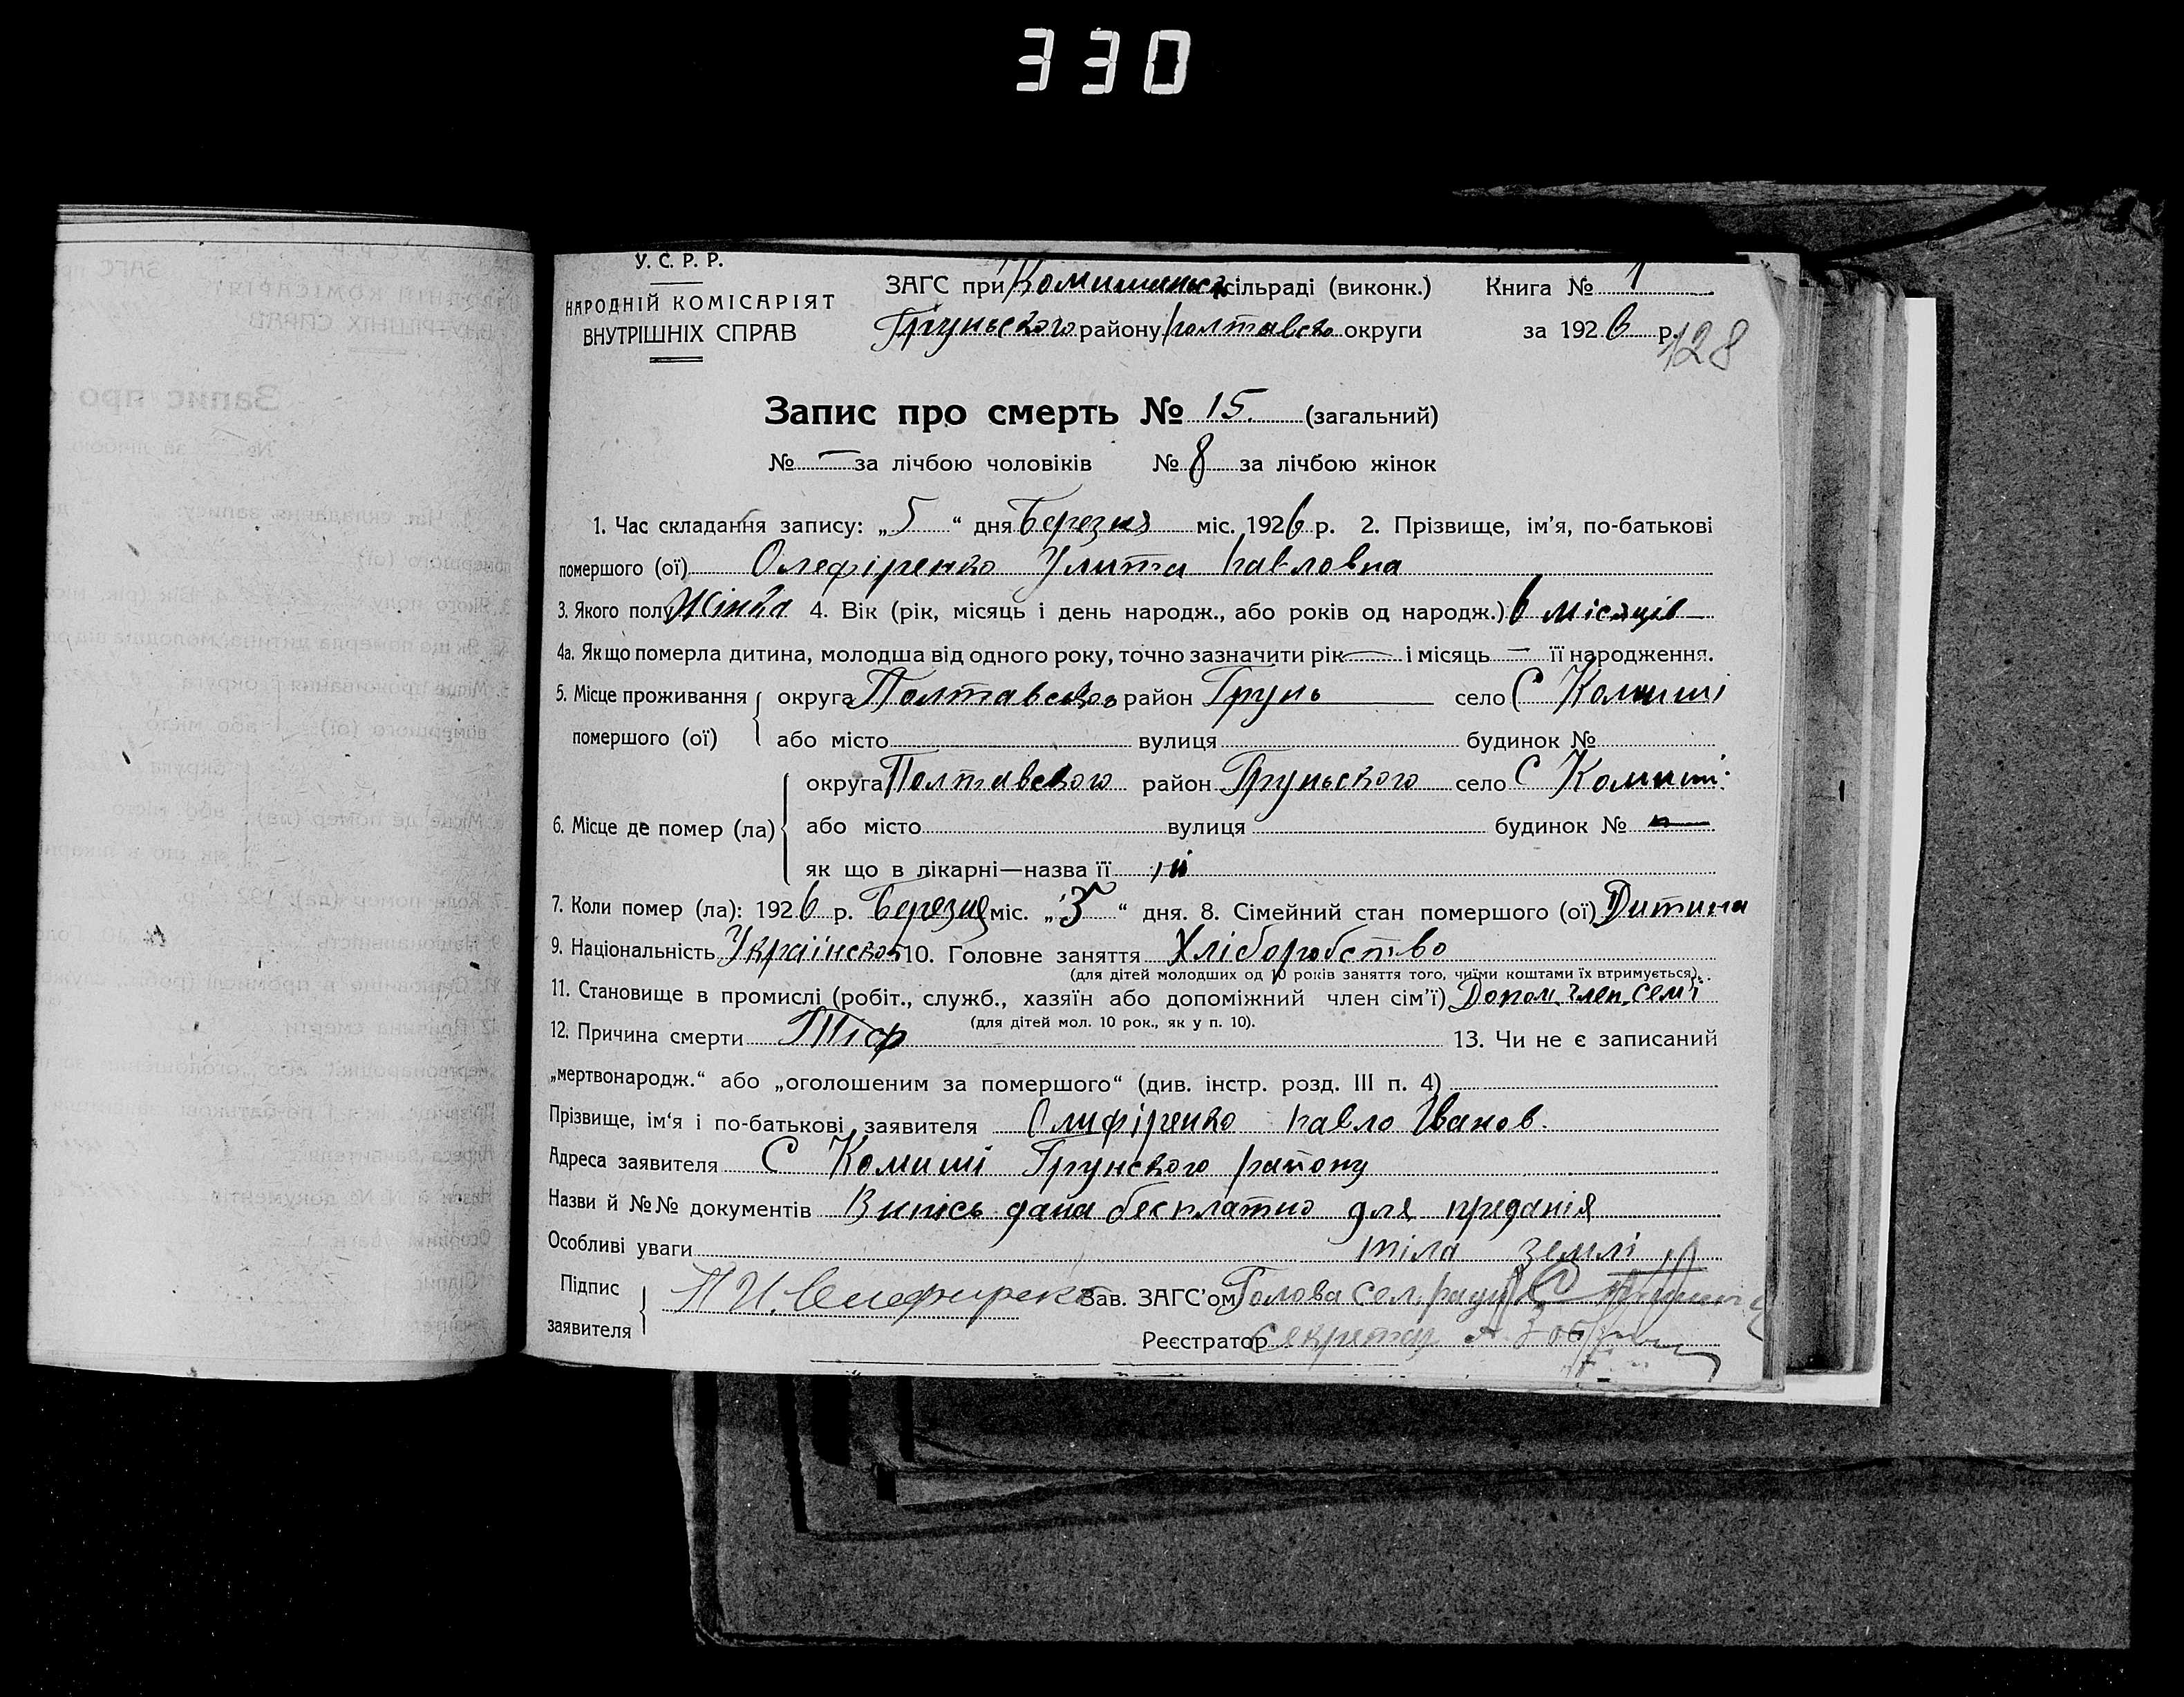 330
У. С. Р. Р.
НАРОДНІЙ КОМІСАРІЯТ
ВНУТРІШНІХ СПРАВ
ЗАГС при Комишанськ сільраді (виконк.) Книга № 1
Грунського району Полтавсько округи за 1926 р.
128
Запис про смерть № 15. (загальний)
№ — за лічбою чоловіків № 8 за лічбою жінок
1. Час складання запису: „5“ дня Березня міс. 1926 р. 2. Прізвище, ім’я, по-батькові
помершого (ої) Олефіренко Улита Павловна
3. Якого полу Жінка 4. Вік (рік, місяць і день народж., або років од народж.) 6 місяців —
4а. Якщо померла дитина, молодша від одного року, точно зазначити рік — і місяць — її народження.
5. Місце проживання округа Полтавсько район Грунь село С Комиші
помершого (ої) або місто вулиця будинок №
округа Полтавського район Груньского село С Комиші
6. Місце де помер (ла) або місто вулиця будинок № —
як що в лікарні—назва її
7. Коли помер (ла): 1926 р. Березня міс. „3“ дня. 8. Сімейний стан помершого (ої) Дитина
9. Національність 10. Головне заняття Хліборобство
(для дітей молодших од 10 років заняття того, чиїми коштами їх втримується).
11. Становище в промислі (робіт., служб., хазяїн або допоміжний член сім’ї) Допом. член. семї
(для дітей мол. 10 рок., як у п. 10).
12. Причина смерти Тіф 13. Чи не є записаний
„мертвонародж.“ або „оголошеним за помершого“ (див. інстр. розд. III п. 4)
Прізвище, ім‘я і по-батькові заявителя Олифіренко Павло Іванов.
Адреса заявителя С Комиші Грунского району
Назви й №№ документів Випісь дана бесплатно для преданія
Особливі уваги тіла землі
Підпис
заявителя П И. Олефиренко Зав. ЗАГС’ом Голова сел. ради
Реєстратор Секретар